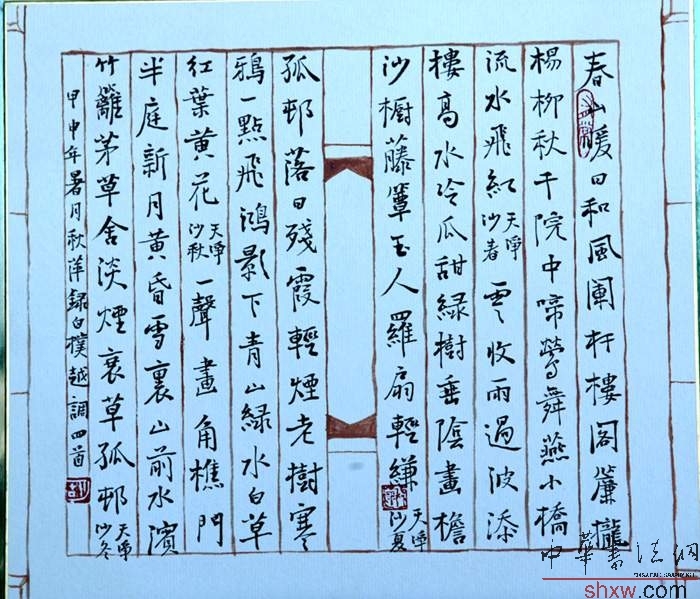 春山暖日和風闌杆樓閣簾櫳
楊柳秋千院中啼鶯舞燕小橋
流水飛紅 天淨沙春 雲收雨過波添
樓高水冷瓜甜綠樹垂陰畫檐
沙橱藤簟玉人羅扇輕縑 天淨沙夏
孤邨落日殘霞輕煙老樹寒
鴉一點飛鴻影下青山綠水白草
紅葉黃花 天淨沙秋 一聲畫角樵門
半庭新月黃昏雪裏山前水濱
竹籬茅草舍淡煙衰草孤邨 天淨沙冬
甲申年暑月秋萍録白樸越調四首
中華書法網
shxw.com